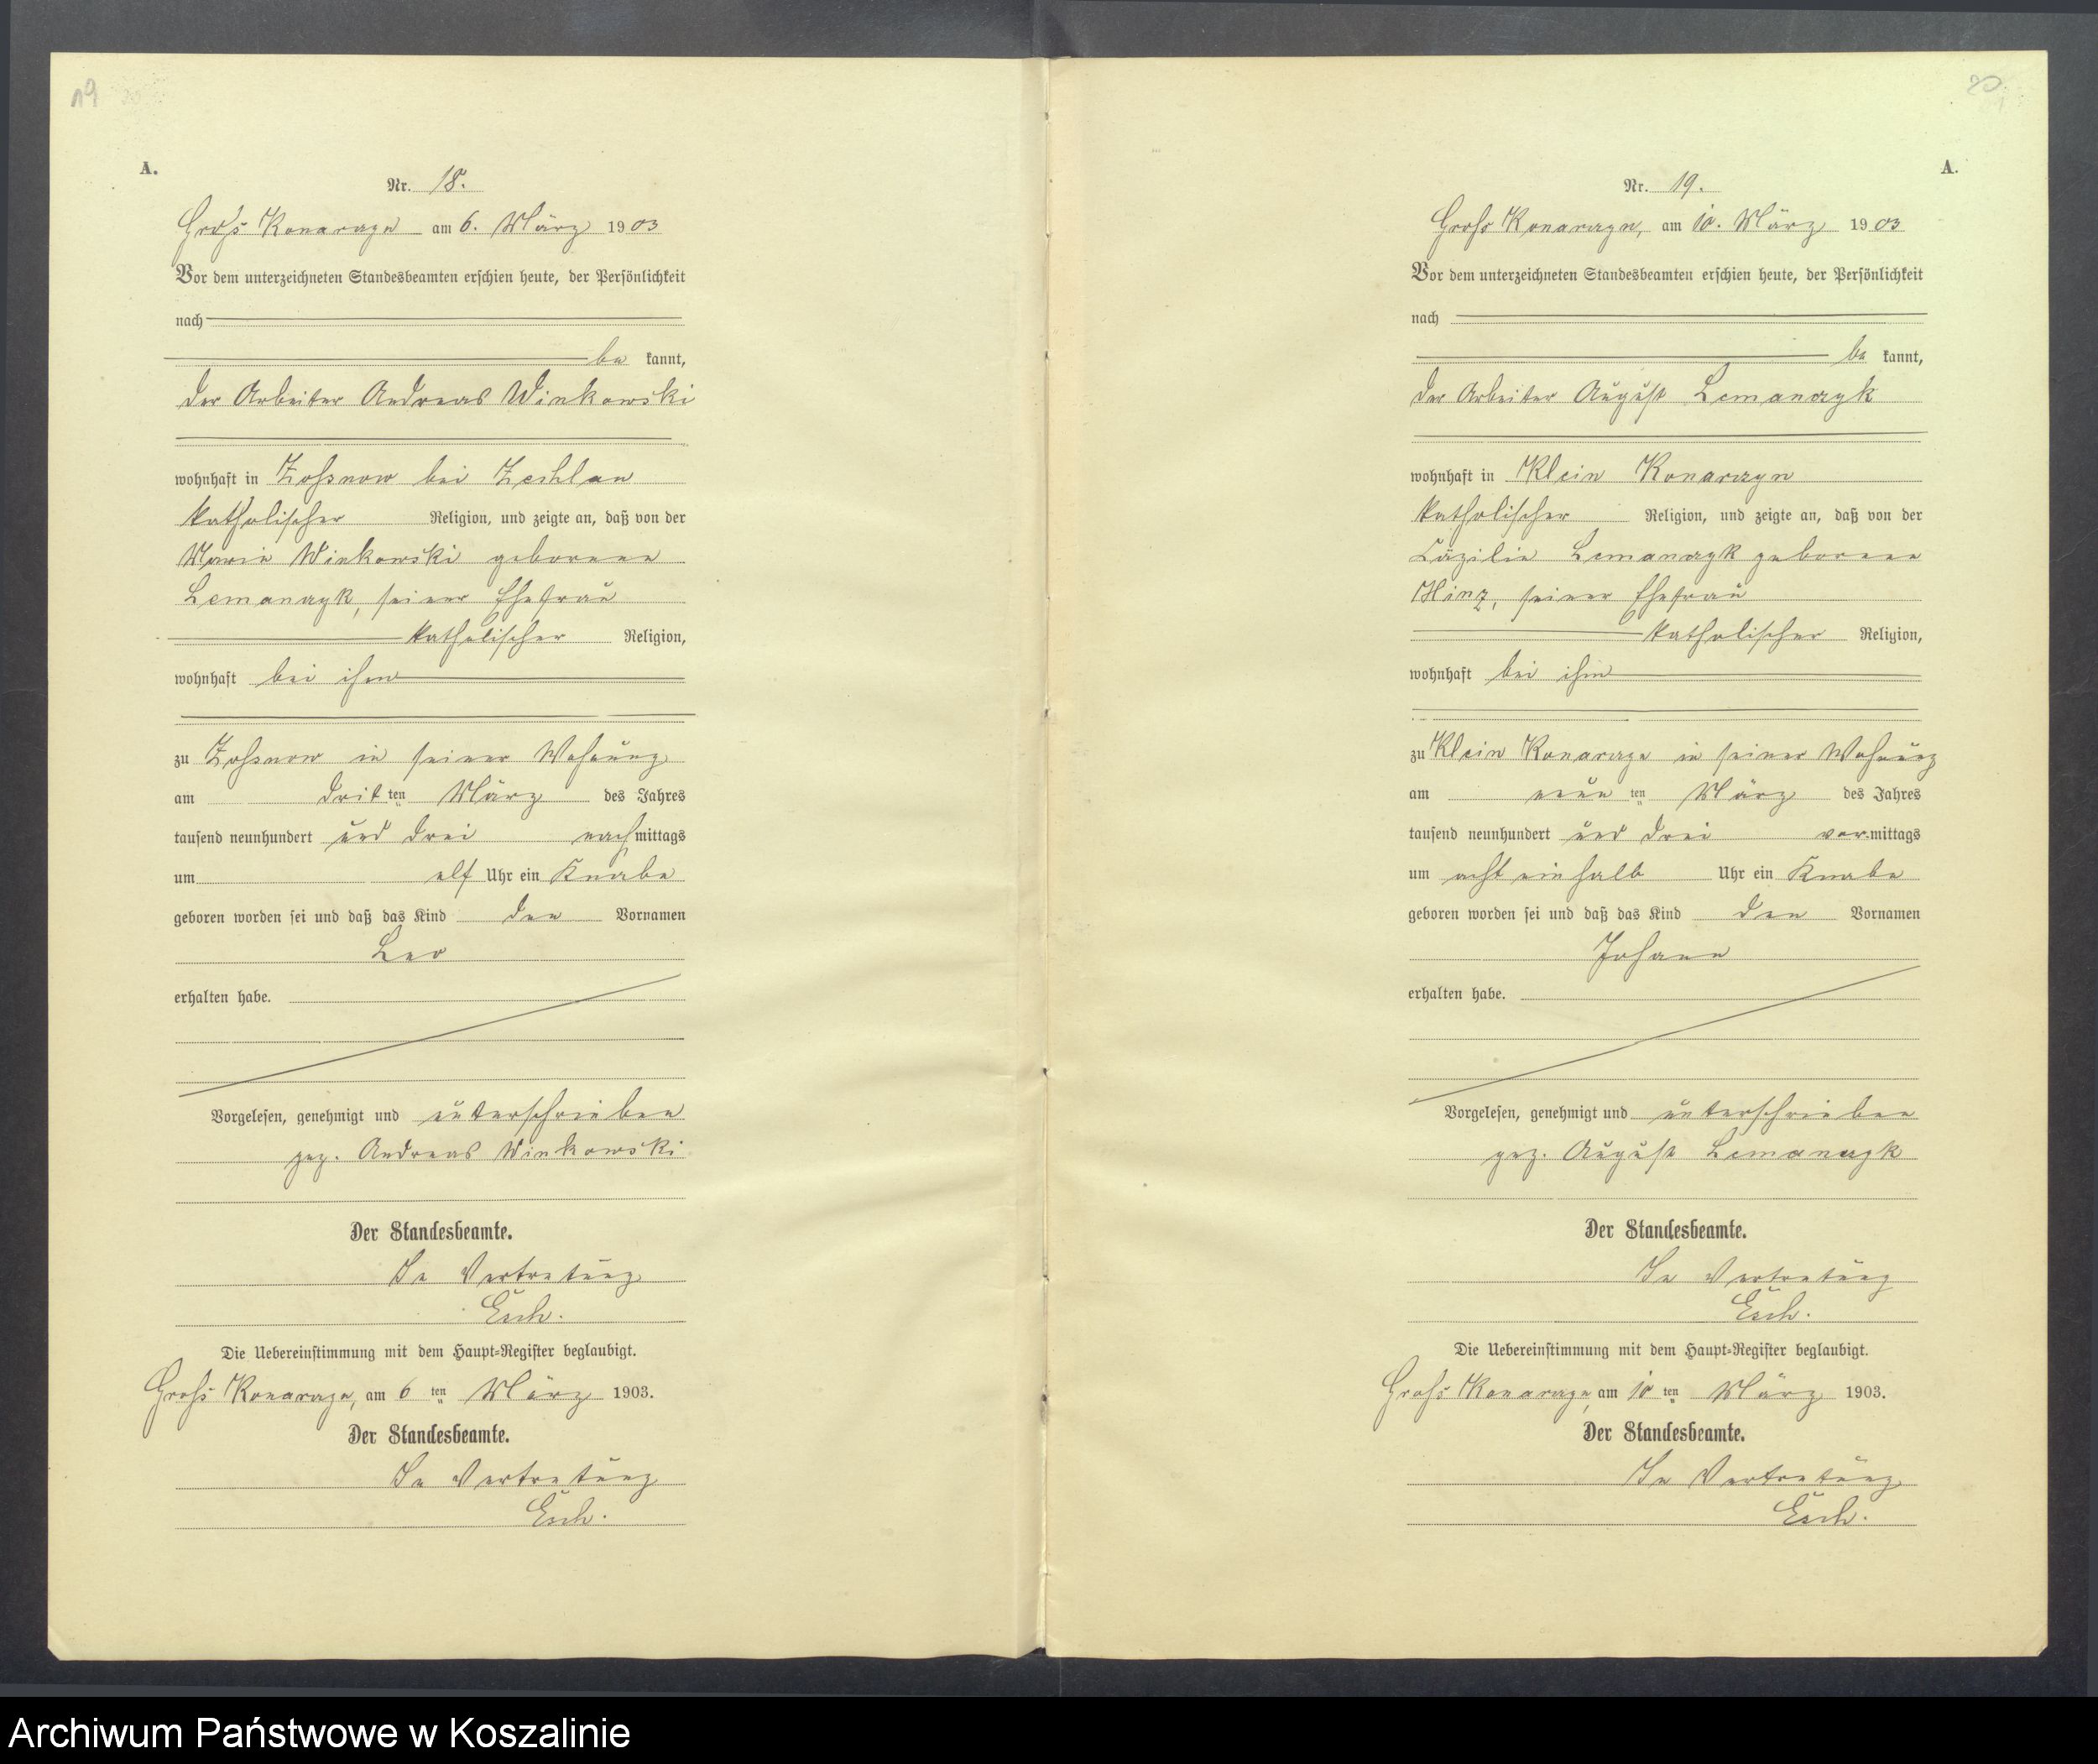 19
A.
Nr. 18.
Groß Konarczyn am 6. März 1903
Vor dem unterzeichneten Standesbeamten erschien heute, der Persönlichkeit
nach
be kannt,
der Arbeiter Andreas Winkowski
wohnhaft in Zoßnow bei Zechlau
katholischer Religion, und zeigte an, daß von der
Marie Winkowski geborenen
Lemanczyk, seiner Ehefrau
katholischer Religion,
wohnhaft bei ihm
zu Zoßnow in seiner Wohnung
am dritten März des Jahres
tausend neunhundert und drei nachmittags
um elf Uhr ein Knabe
geboren worden sei und daß das Kind den Vornamen
Leo
erhalten habe.
Vorgelesen, genehmigt und unterschrieben
gez. Andreas Winkowski
Der Standesbeamte.
In Vertretung
Esch.
Die Uebereinstimmung mit dem Haupt-Register beglaubigt.
Groß Konarczyn, am 6 ten März 1903.
Der Standesbeamte.
In Vertretung
Esch.
20
A.
Nr. 19.
Groß Konarczyn, am 10. März 1903
Vor dem unterzeichneten Standesbeamten erschien heute, der Persönlichkeit
nach
be kannt,
der Arbeiter August Lemanczyk
wohnhaft in Klein Konarczyn
katholischer Religion, und zeigte an, daß von der
Cäzilie Lemanczyk geborenen
Hinz, seiner Ehefrau
katholischer Religion,
wohnhaft bei ihm
zu Klein Konarczyn in seiner Wohnung
am neun ten März des Jahres
tausend neunhundert und drei vormittags
um acht einhalb Uhr ein Knabe
geboren worden sei und daß das Kind den Vornamen
Johann
erhalten habe.
Vorgelesen, genehmigt und unterschrieben
gez. August Lemanczyk
Der Standesbeamte.
In Vertretung
Esch.
Die Uebereinstimmung mit dem Haupt-Register beglaubigt.
Groß Konarczyn, am 10 ten März 1903.
Der Standesbeamte.
In Vertretung
Esch.
Archiwum Państwowe w Koszalinie